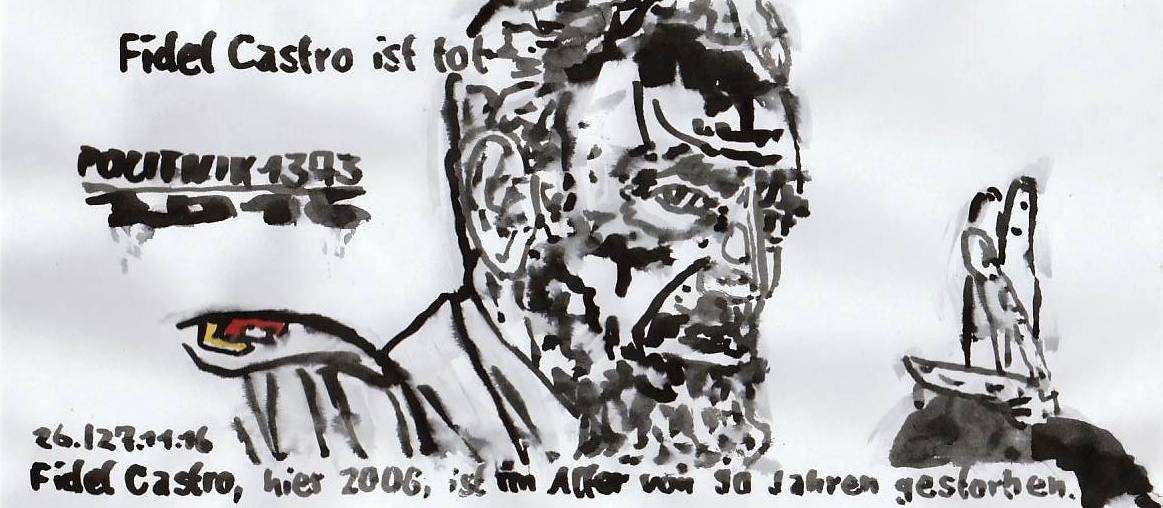 Fidel Castro ist tot
POLITNIK1373
26./27.11.16
Fidel Castro, hier 2006, ist im Alter von 90 Jahren gestorben.